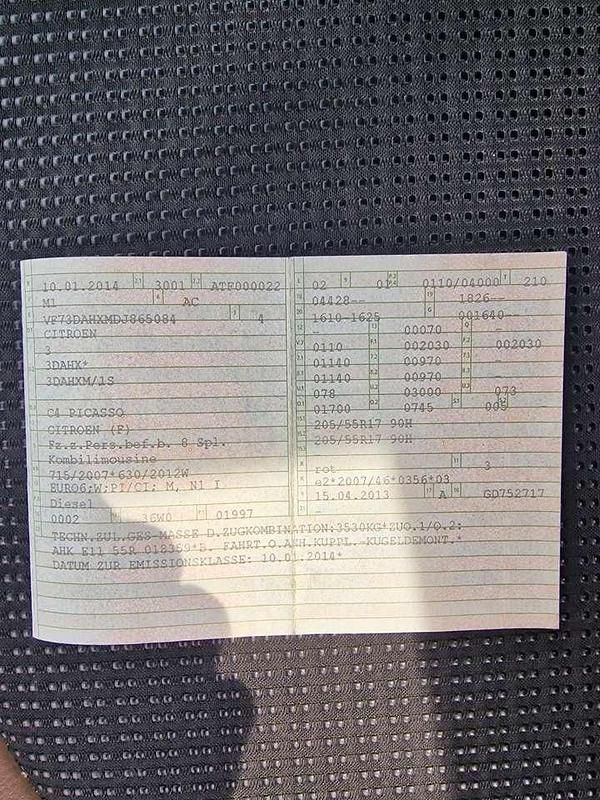 10.01.2014 3001 ATF000022
M1 AC
VF73DAHXMDJ865084 4
CITROEN
3
3DAHX*
3DAHXM/1S
C4 PICASSO
CITROEN (F)
Fz.z.Pers.bef.b. 8 Spl.
Kombilimousine
715/2007*630/2012W
EURO6;W;PI/CI; M, N1 I
Diesel
0002 36W0 01997
02 01 0110/04000 210
04428-- 1826--
1610-1625 001640--
- 00070 -
0110 002030 002030
01140 00970 -
01140 00970 -
078 03000 073
01700 0745 005
205/55R17 90H
205/55R17 90H
-
rot 3
e2*2007/46*0356*03
15.04.2013 A GD752717
-
TECHN.ZUL.GES-MASSE D.ZUGKOMBINATION:3530KG*ZUO.1/O.2:
AHK E11 55R 018359*B. FAHRT.O.ANH.KUPPL.-KUGELDEMONT.*
DATUM ZUR EMISSIONSKLASSE: 10.01.2014*